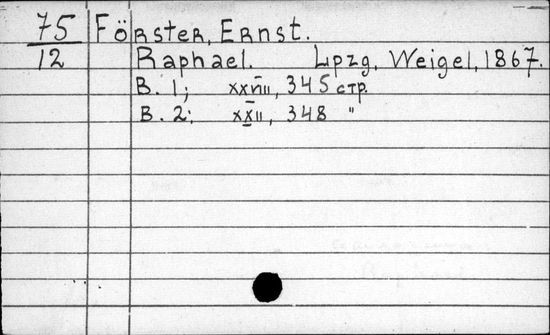 75 Förster, Ernst.
12 Raphael. Lpzg, Weigel, 1867.
B. 1; xxviii, 345 стр.
B. 2: xxii, 348 "